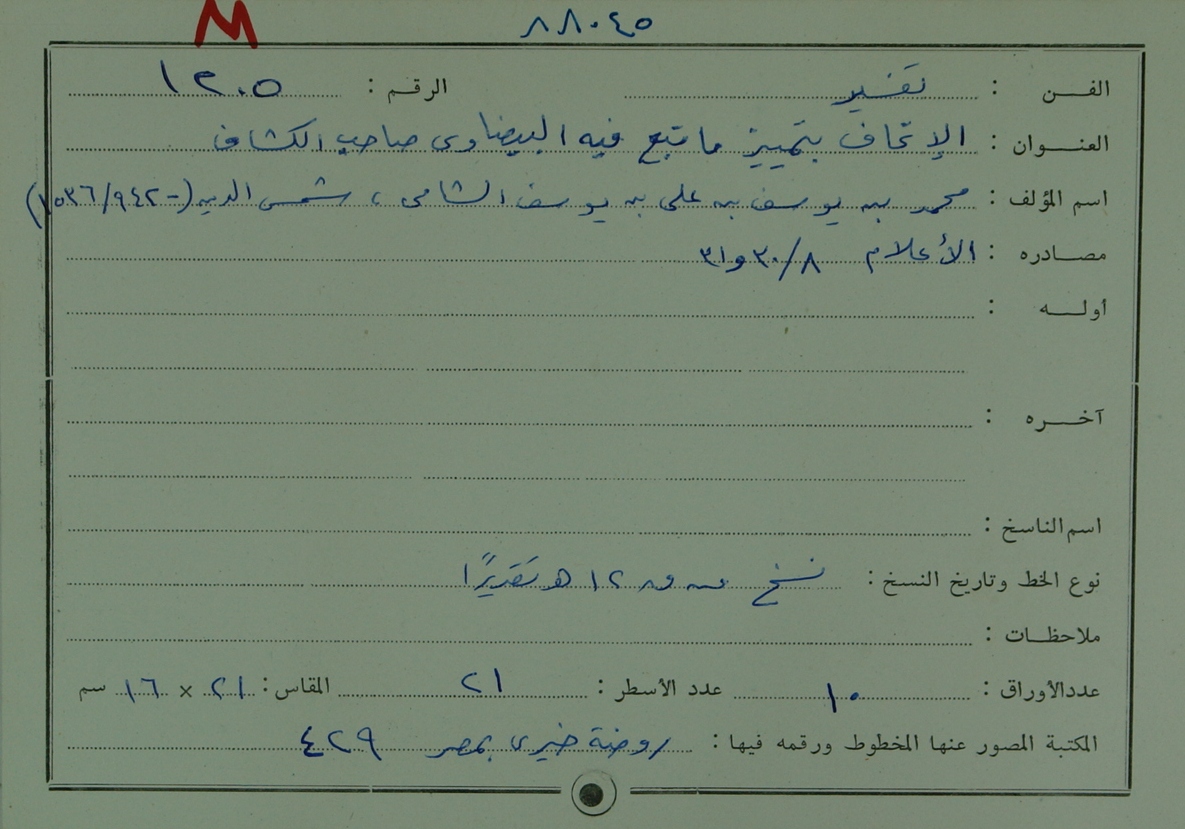 M ٨٨٠٤٥
الفن : تفسير الرقم : ١٢٠٥
العنوان : الإتحاف بتمييز ما تبع فيه البيضاوى صاحب الكشاف
اسم المؤلف : محمد بن يوسف بن على بن يوسف الشامى ، شمس الدين (- ٩٤٢/١٥٣٦)
مصادره : الأعلام ٨/٣٠ و٣١
أوله :
آخره :
اسم الناسخ :
نوع الخط وتاريخ النسخ : نسخ من ق ١٢ هـ تقديرًا
ملاحظات :
عدد الأوراق : ١٠ عدد الأسطر : ٢١ المقاس : ٢١ × ١٦ سم
المكتبة المصور عنها المخطوط ورقمه فيها : روضة خيرى بمصر ٤٢٩